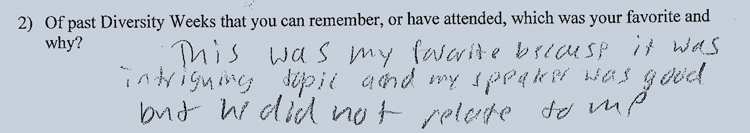 2) Of past Diversity Weeks that you can remember, or have attended, which was your favorite and
why?
This was my favorite because it was
intriguing topic and my speaker was good
but he did not relate to me